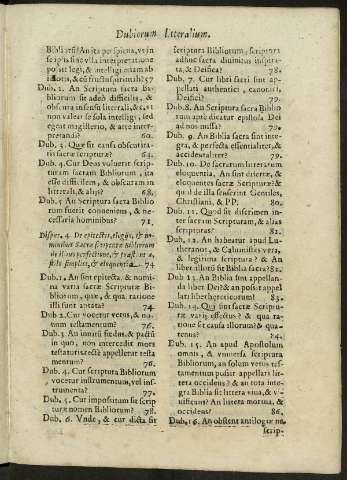 Dubiorum litteralium.
Bibliæ sit? An ita perspicua, vt in
se ipsis sine vlla interpretatione
possit legi, & intelligi etiam ab
idiotis, & eis fructus spirituali? 57
Dub. 2. An Scriptura sacra Bi-
bliorum sit adeò difficilis, &
obscura in sensu litterali, & c, vt
non valeat se sola intelligi, sed
egeat magisterio, & arte inter-
pretandi? 60.
Dub. 3. Quæ sit causa obscurita-
tis sacræ scripturæ? 64.
Dub. 4. Cur Deus voluerit scrip-
turam sacram Bibliorum, ita
esse difficilem, & obscuram in
litterali, & alijs? 68.
Dub. 5. An Scriptura sacra Biblio
rum fuerit conueniens, & ne-
cessaria hominibus? 71.
Disput. 4. De epitectis, elogijs, & no-
minibus Sacræ scripturæ Bibliorum
de illius perfectione, & tract. in
stili simplex, & eloquentia. 74
Dub. 1. An sint epitecta, & nomi-
na varia sacræ Scripturæ Bi-
bliorum, quæ, & qua ratione
illi sunt aptata? 74.
Dub. 2. Cur vocetur vetus, & no-
uum testamentum? 76.
Dub. 3. An innuiti fœdus, & pactũ
in quo, non intercedit mors
testatoris rectè appelletur testa
mentum? 76.
Dub. 4. Cur scriptura Bibliorum
vocetur instrumentum, vel ins-
trumenta? 77.
Dub. 5. Cur impositum sit scrip
turæ nomen Bibliorum? 78.
Dub. 6. Vnde, & cur dicta sit
scriptura Bibliorum, Scriptura
adhuc sacra diuinitus inspira-
ta, & Deifica? 78.
Dub. 7. Cur libri sacri sint ap-
pellati authentici, canonici,
Deifici? 79.
Dub. 8. An Scriptura sacra Biblio
rum aptè dicatur epistola Dei
ad nos missa? 79.
Dub. 9. An Biblia sacra sint inte-
gra, & perfecta essentialiter, &
accidentaliter? 79.
Dub. 10. De sacrarum litterarum
eloquentia. An sint disertæ, &
eloquentes sacræ Scripturæ? &
quid de illa senserint Gentiles,
Christiani, & PP. 80.
Dub. 11. Quod sit discrimen in-
ter sacram Scripturam, & alias
scripturas? 81.
Dub. 12. An habeatur apud Lu-
theranos, & Caluinistas vera,
& legitima scriptura? & An
liber illorũ sit Biblia sacra? 82.
Dub. 13. An Biblia sint appellan-
da liber Dei? & an possit appel
lari liber hæreticorum? 83.
Dub. 14. Qui sint sacræ Scriptu-
ræ varij effectus? & qua ra-
tione sit causa illorum? & qua-
tenus? 84.
Dub. 15. An apud Apostolum
omnis, & vniuersa scriptura
Bibliorum, an solum vetus tes-
tamentum possit appellari lit-
tera occidens? & an tota inte-
gra Biblia sit littera viua, & vi-
uificans? An littera mortua, &
occidens? 86.
Dub. 16. An obstent antilogiæ na
scrip-